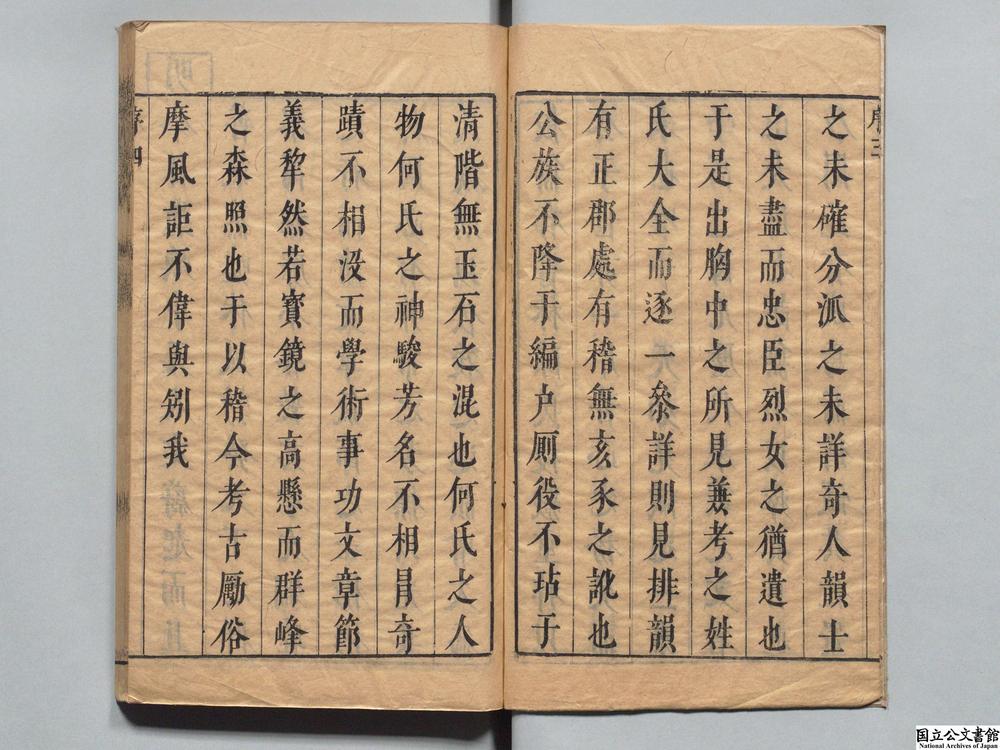 序三
之未確分派之未詳奇人韻士
之未盡而忠臣烈女之猶遺也
于是出胸中之所見兼考之姓
氏大全而逐一叅詳則見排韻
有正郡處有稽無亥豕之訛也
公族不降于編户厠役不玷于
清階無玉石之混也何氏之人
物何氏之神駿芳名不相冒奇
蹟不相沒而學術事功文章節
義犂然若寶鏡之高懸而群峰
之森照也于以稽今考古勵俗
摩風詎不偉與矧我
序四
国立公文書館
National Archives of Japan